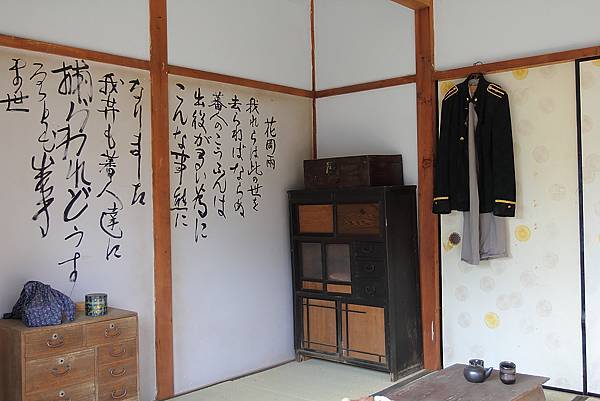 花岡両
我れらは此の世を
去らねばならぬ
蕃人のこうふんは
出役が多い為に
こんな事件に
なりました
我等も蕃人達に
捕らわれどうす
ることも出来
ま世